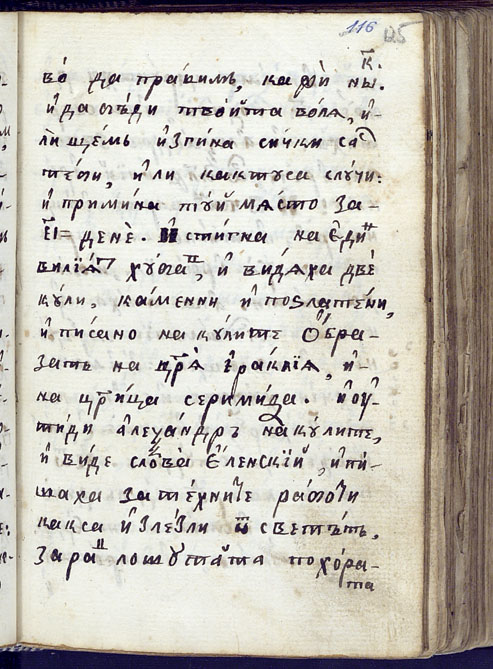 116
к҃.
во̀ да правимъ, кажѝ ны.
и҆ да бъ́ди твои́та во́лѧ, и҆-
лищемъ и҆згина си́чки са
те́зи, и҆ли кактуса слу́чи:
и҆ примина туй мѧ́сто за-
е҃і= денѐ. И҆ стигна на Е҆ди
вилїѧ хуба, и҆ ви́дѧха двѐ
ку́ли, ка́менни и҆ позлате́ни,
и҆ пи́сано на ку́лите О҆бра-
затъ на цр҃ѧ̀ і҆раклїѧ, и҆-
на цр҃и́ца серими́да. и҆ ѻу҆-
тиди а҆леѯа́ндръ на ку́лите,
и҆ ви́де сло́ва Е҆ленскїй, и҆ пи-
шаха за те́хните ра́боти
какса и҆зле́зли ѿ све́тътъ.
зара лошута́та по хо́ра-
та